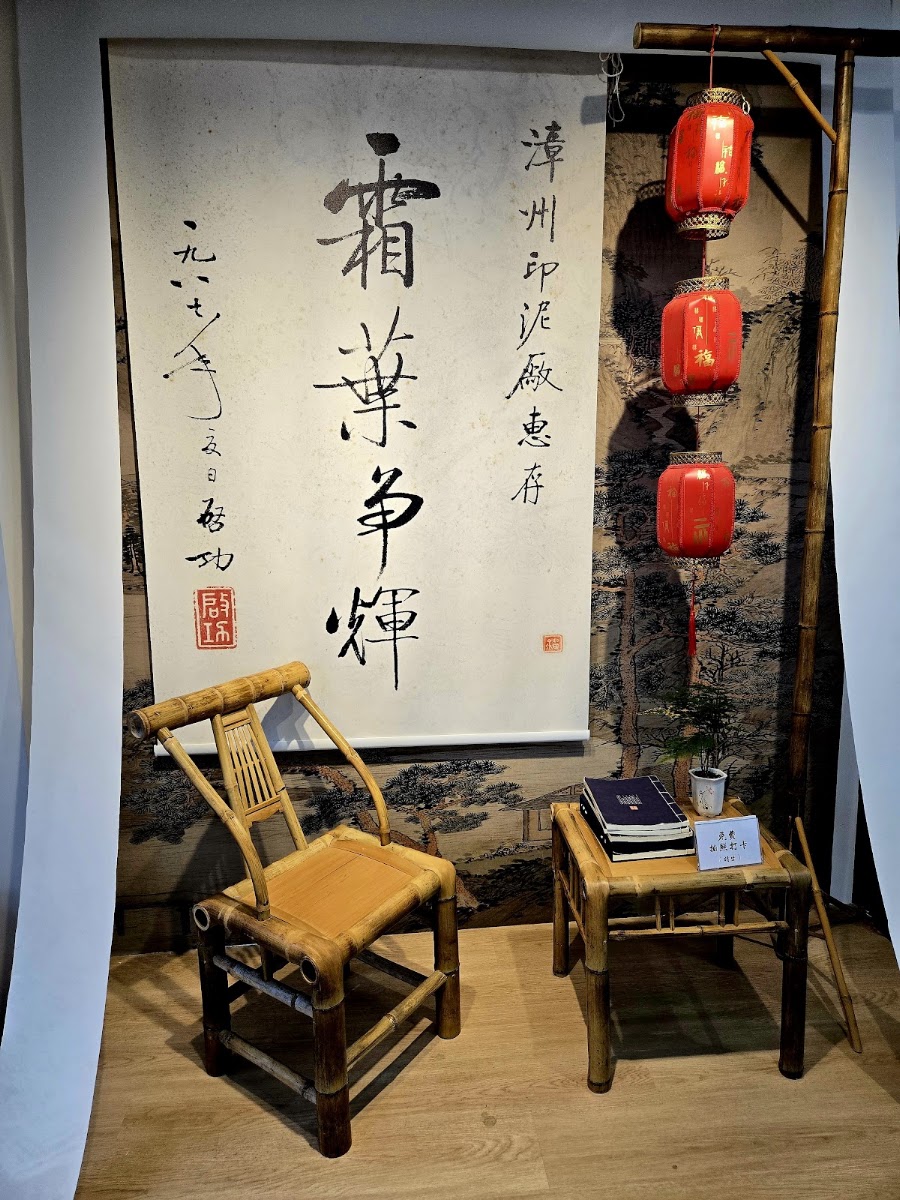 漳州印泥廠惠存
霜葉争輝
一九八七年夏日啓功
啟功
福
免费
拍照打卡